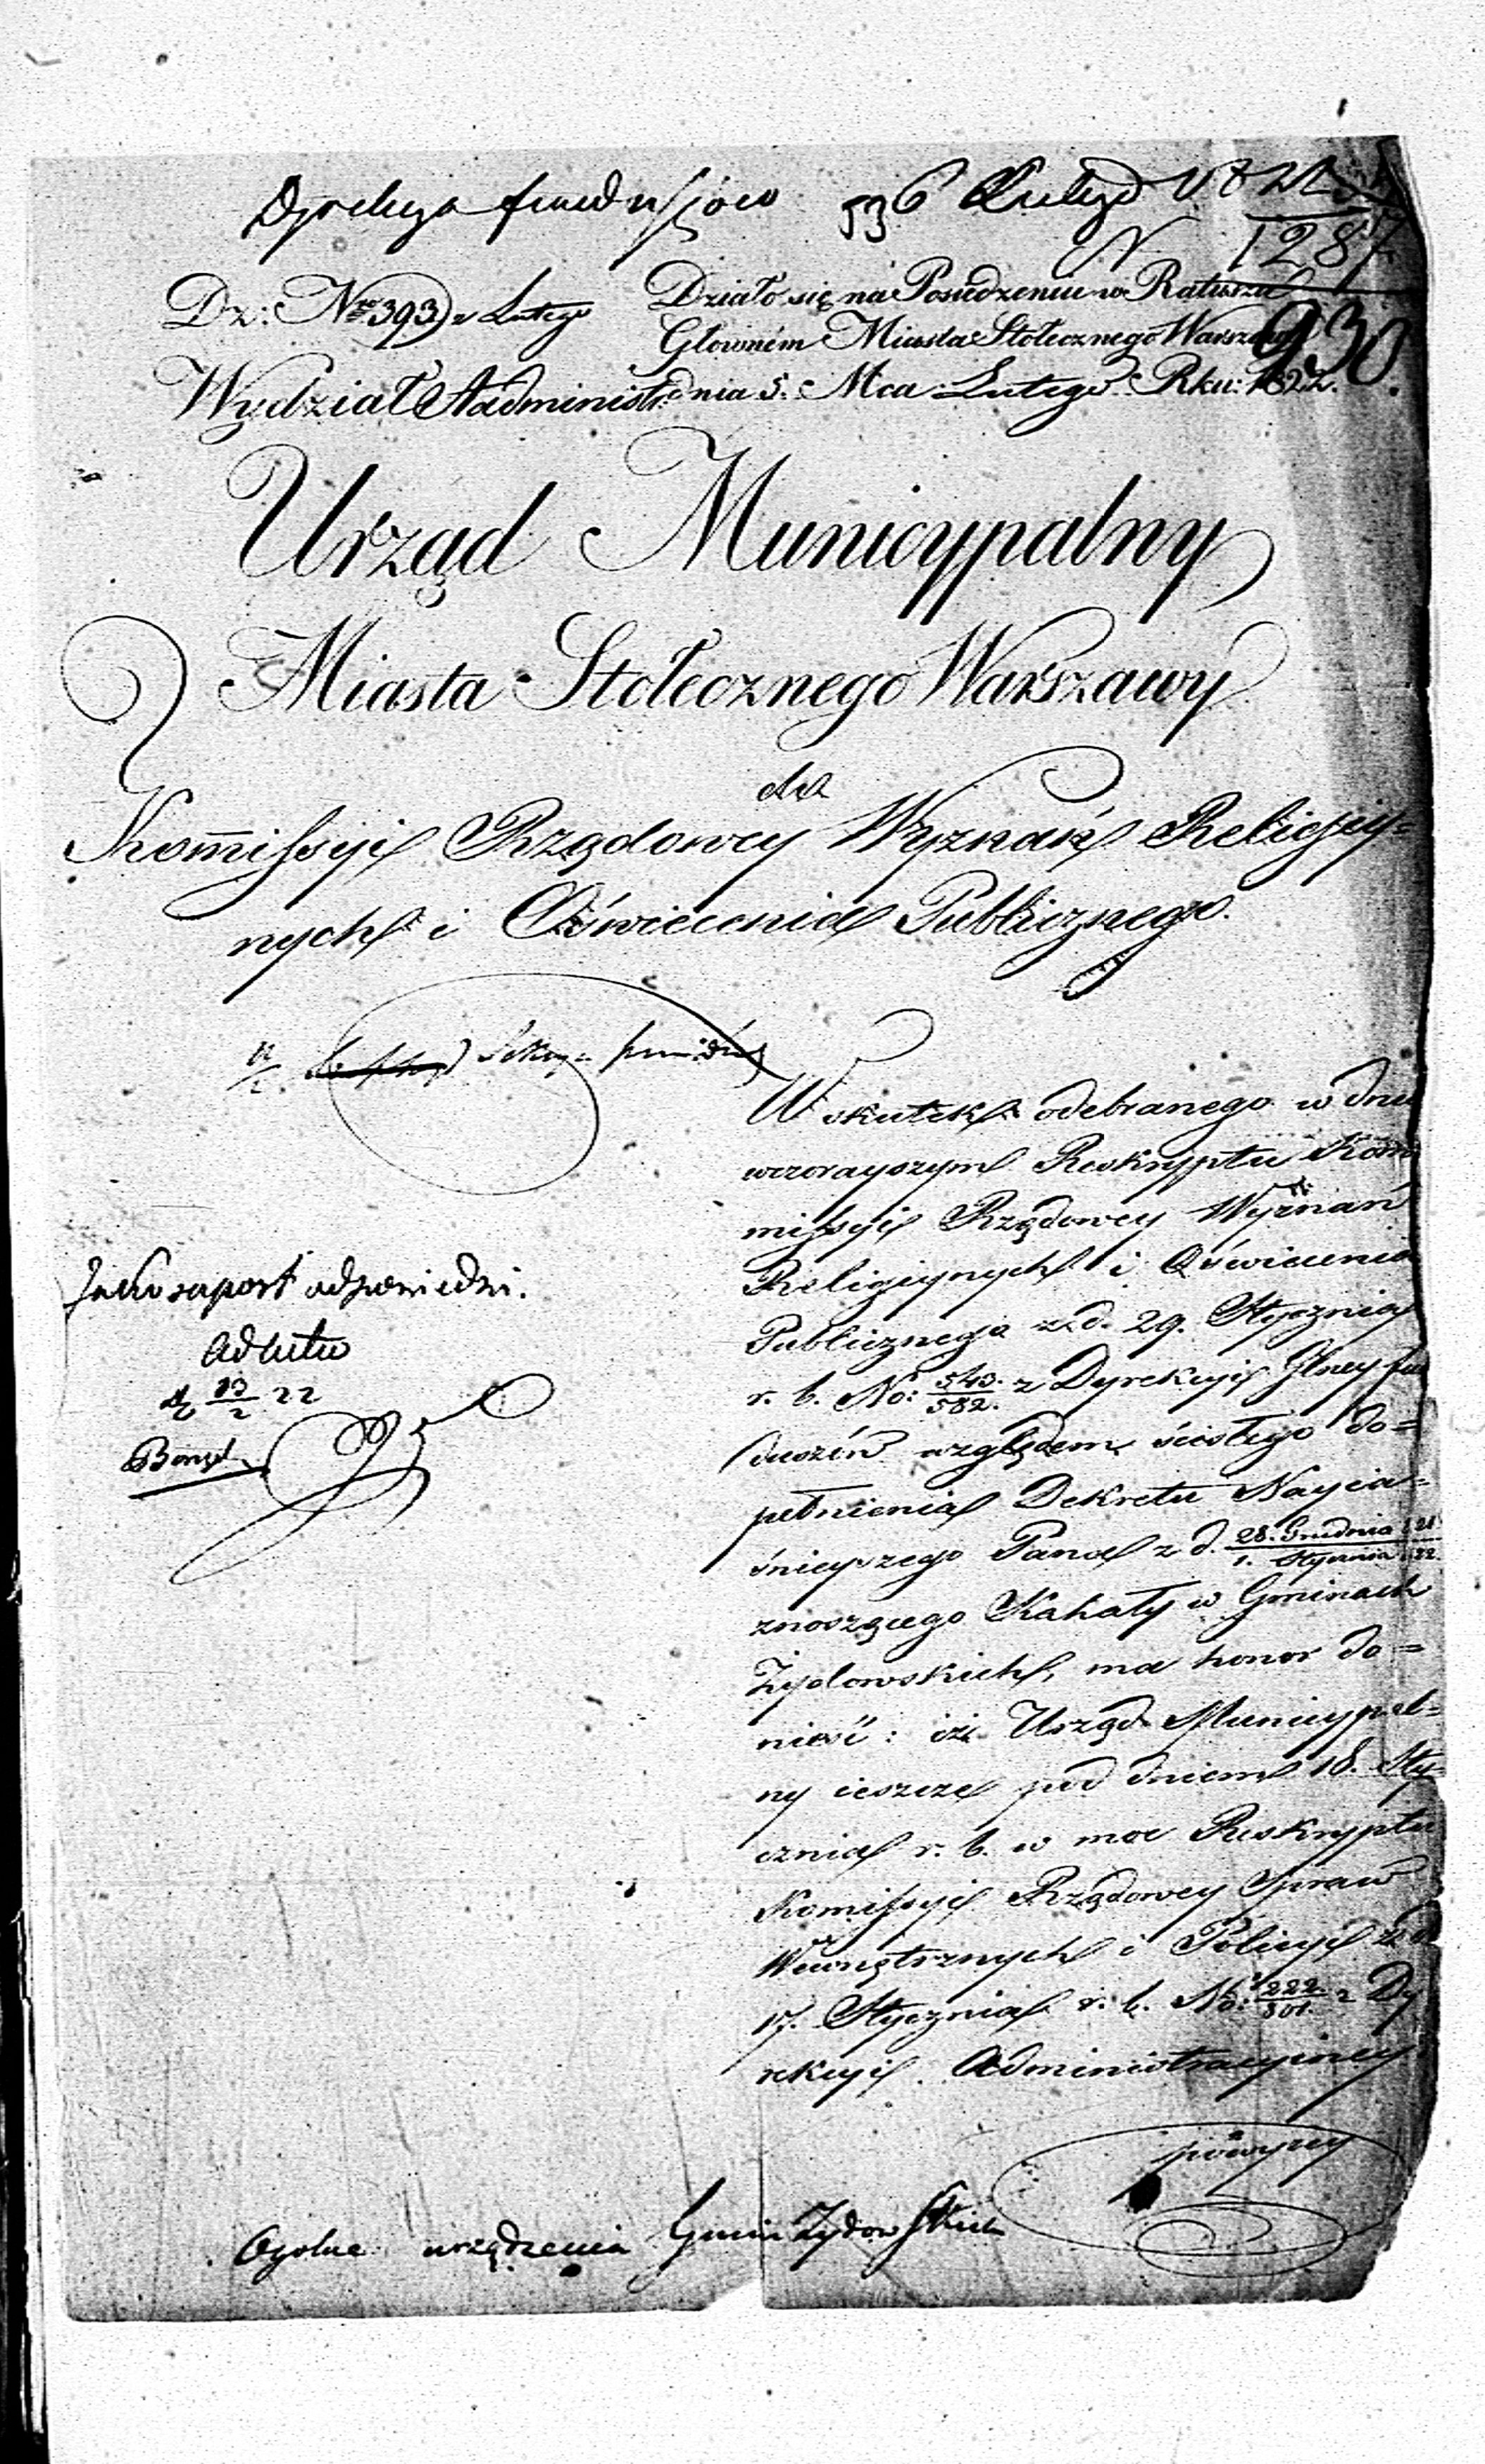 Dyrekcya funduszów 536 Lutego 1822
N 1287
Dz: Nro 393 z Lutego
Działo się na Posiedzeniu w Ratuszu
Głowném Miasta Stołecznego Warszawy
930.
Wydział Administr. dnia 5. Mca Lutego Rku: 1822.
Urząd Municypalny
Miasta Stołecznego Warszawy
do
Kom̅issyi Rządowey Wyznań Religiy=
nych i Oświecenia Publicznego.
W skutek odebranego w dniu
wczorayszym Reskryptu Kom̅
missyi Rządowey Wyznań
Religiynych i Oświecenia
Publicznego z d. 29. Stycznia
r. b. No: 543/582. z Dyrekcyi Głney fun
duszów względem ścisłego do=
pełnienia Dekretu Nayia=
śnieyszego Pana z d. 28. Grudnia 821/1. Stycznia 822
znoszącego Kahały w Gminach
Żydowskich, ma honor do=
nieść: iż Urząd Municypal=
ny ieszcze pod dniem 18. Sty=
cznia r. b. w moc Reskryptu
Komissyi Rządowey Spraw
Wewnętrznych i Policyi z d.
17. Stycznia r. b. No: 222/301. z Dy
rekcyi Administracyiney
powyżey
Jako raport odpowiedzi.
Ad acta
d 13/2 22
Ogolne urządzenia Gmin Żydowskich